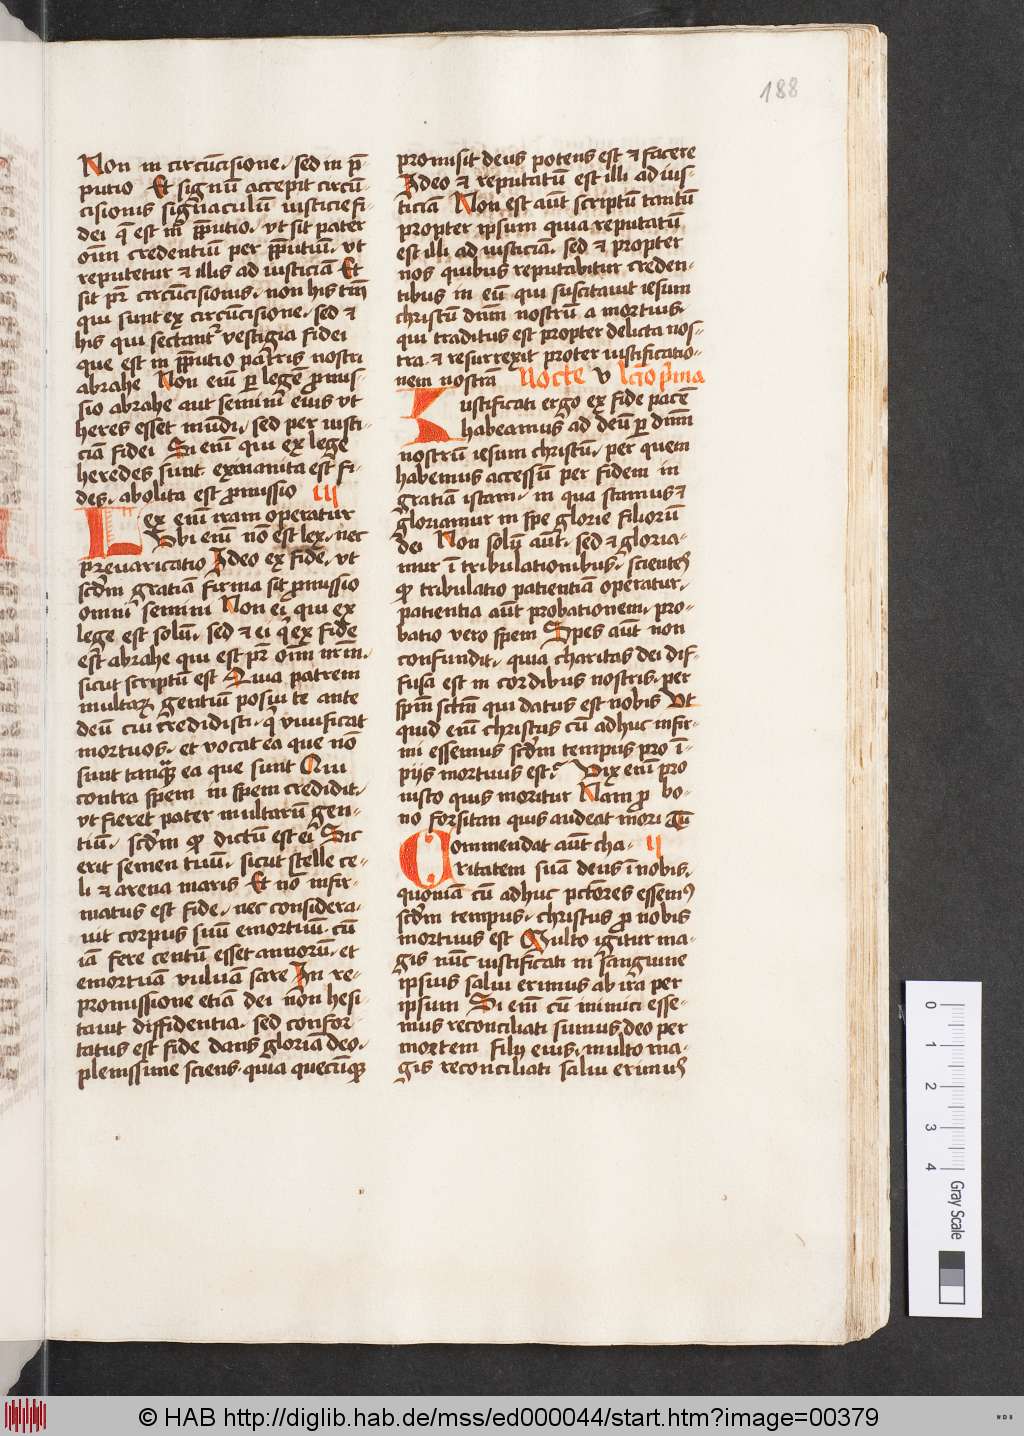 188
Non in circūcisione, sed in p̄-
putio Et signū accepit circū-
cisionis signaculū iusticie fi-
dei q̄ est in p̄putio, vt sit pater
oīm credentiū per p̄putiū, vt
reputetur & illis ad iusticiā Et
sit pr̄ circūcisionis, non his tm̄
qui sunt ex circūcisione, sed &
his qui sectantr̄ vestigia fidei
que est in p̄putio patris nostri
abrahe Non eni ꝑ legē ꝓmis-
sio abrahe aut semini eius vt
heres esset mūdi, sed per iusti-
ciā fidei Si eni qui ex lege
heredes sunt exinanita est fi-
des, abolita est ꝓmissio III
Lex enī iram operatur
Vbi enī nō est lex, nec
preuaricatio Ideo ex fide, vt
scd̄m gratiā firma sit ꝓmissio
omni semini Non ei qui ex
lege est solū, sed & ei q̄ ex fide
est abrahe qui est pr̄ oīm nr̄m,
sicut scriptū est Quia patrem
multaꝝ gentiū posui te ante
deū cui credidisti, q̄ viuificat
mortuos, et vocat ea que nō
sunt tanq̄ ea que sunt Qui
contra spem in spem credidit,
vt fieret pater multarū gen-
tiū, scd̄m qd̄ dictū est ei Sic
erit semen tuū, sicut stelle ce-
li & arena maris Et nō infir-
matus est fide, nec considera-
uit corpus suū emortuū, cū
iā fere centū esset annorū, et
emortuā vuluā sare In re-
promissione etiā dei non hesi-
tauit diffidentia, sed confor-
tatus est fide dans gloriā deo,
plenissime sciens, quia quecūqꝫ
promisit deus potens est & facere
Ideo & reputatū est illi ad ius-
ticiā Non est aūt scriptū tantū
propter ipsum quia reputatū
est illi ad iusticiā, sed & propter
nos quibus reputabitur creden-
tibus in eū qui suscitauit iesum
christū dn̄m nostrū a mortuis,
qui traditus est propter delicta nos-
tra & resurrexit proter iustificatio-
nem nostrā Nocte v lc̄io p̄ma
Iustificati ergo ex fide pacē
habeamus ad deū ꝑ dn̄m
nostrū iesum christū, per quem
habemus accessū per fidem in
gratiā istam, in qua stamus &
gloriamur in spe glorie filiorū
dei Non solū aūt, sed & gloria-
mur ī tribulationibus, scientes
qd̄ tribulatio patientiā operatur,
patientia aūt probationem, pro-
batio vero spem Spes aūt non
confundit, quia charitas dei dif-
fusa est in cordibus nostris, per
spm̄ sctm̄ qui datus est nobis Vt
quid enī christus cū adhuc infir-
mi essemus scd̄m tempus pro ī-
piis mortuus est? Vix enī pro
iusto quis moritur Nam ꝓ bo-
no forsitan quis audeat mori Tu
Commendat aūt cha- II
ritatem suā deus ī nobis,
quoniā cū adhuc pctores essemꝰ
scd̄m tempus, christus ꝓ nobis
mortuus est Multo igitur ma-
gis nūc iustificati in sanguine
ipsius salui erimus ab ira per
ipsum Si enī cū inimici esse-
mus reconciliati sumus deo per
mortem filij eius, multo ma-
gis reconciliati salui erimus
0 1 2 3 4 Gray Scale
© HAB http://diglib.hab.de/mss/ed000044/start.htm?image=00379